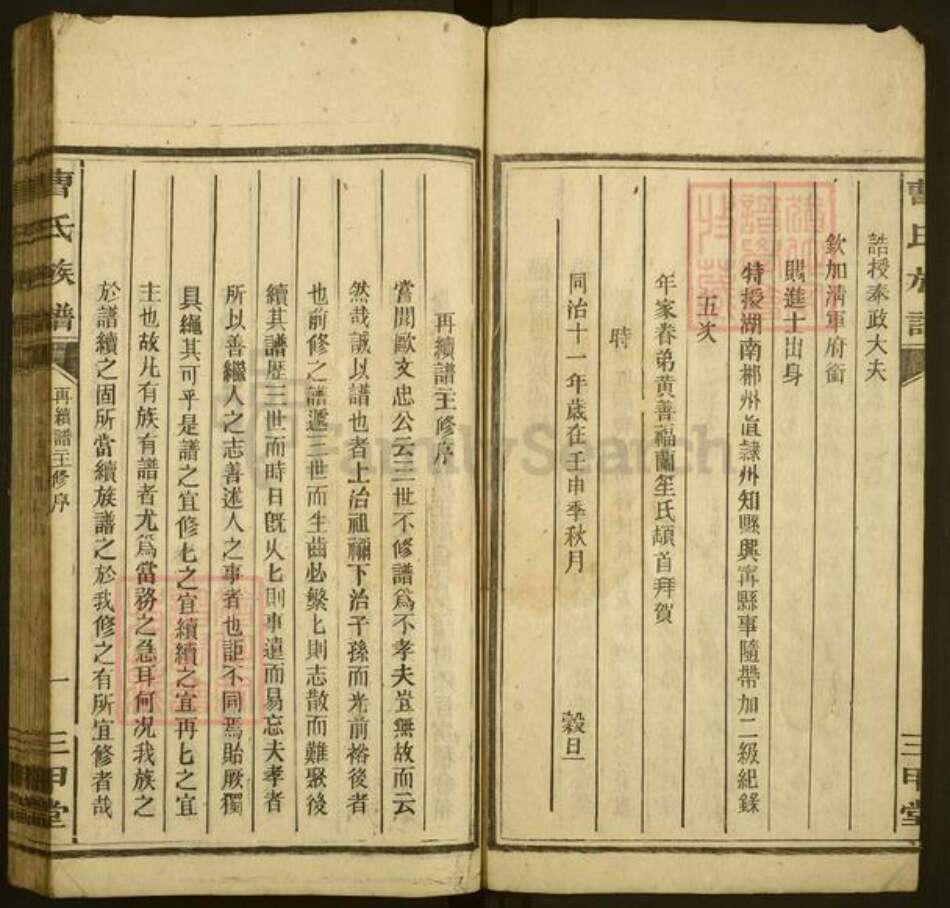 曹氏族譜
三甲堂
誥授奉政大夫
欽加清軍府銜
賜進士出身
特授湖南郴州直隸州知縣興寧縣事隨帶加二級紀錄
五次
年家眷弟黃善福蘭笙氏頓首拜賀
時
同治十一年歲在壬申季秋月 穀旦
再續譜主修序
嘗聞歐文忠公云三世不修譜爲不孝夫豈無故而云
然哉誠以譜也者上治祖禰下治子孫而光前裕後者
也前修之譜遞三世而生齒必繁匕則志散而難聚後
續其譜歷三世而時日旣久匕則事遠而易忘夫孝者
所以善繼人之志善述人之事者也詎不同焉貽厥獨
具繩其可乎是譜之宜修匕之宜續續之宜再匕之宜
主也故凡有族有譜者尤爲當務之急耳何况我族之
於譜續之固所當續族譜之於我修之有所宜修者哉
曹氏族譜
再續譜主修序
一
三甲堂
FamilySearch